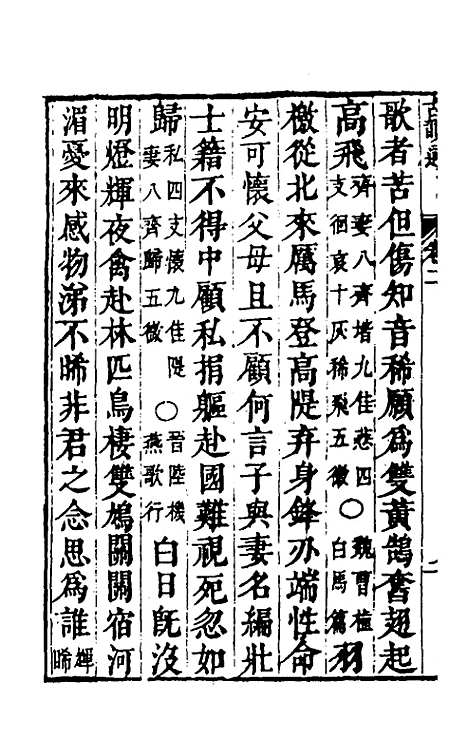 古韻通 卷二
歌者苦但傷知音稀願爲雙黃鵠奮翅起
高飛齊妻八齊堦九佳悲四支徊哀十灰稀飛五微〇魏曹植白馬篇羽
檄從北來厲馬登高隄弃身鋒刃端性命
安可懷父母且不顧何言子與妻名編壯
士籍不得中顧私捐軀赴國難視死忽如
歸私四支懷九佳隄妻八齊歸五微〇晉陸機燕歌行白日旣沒
明燈輝夜禽赴林匹鳥棲雙鳩關關宿河
湄憂來感物涕不晞非君之念思爲誰輝晞